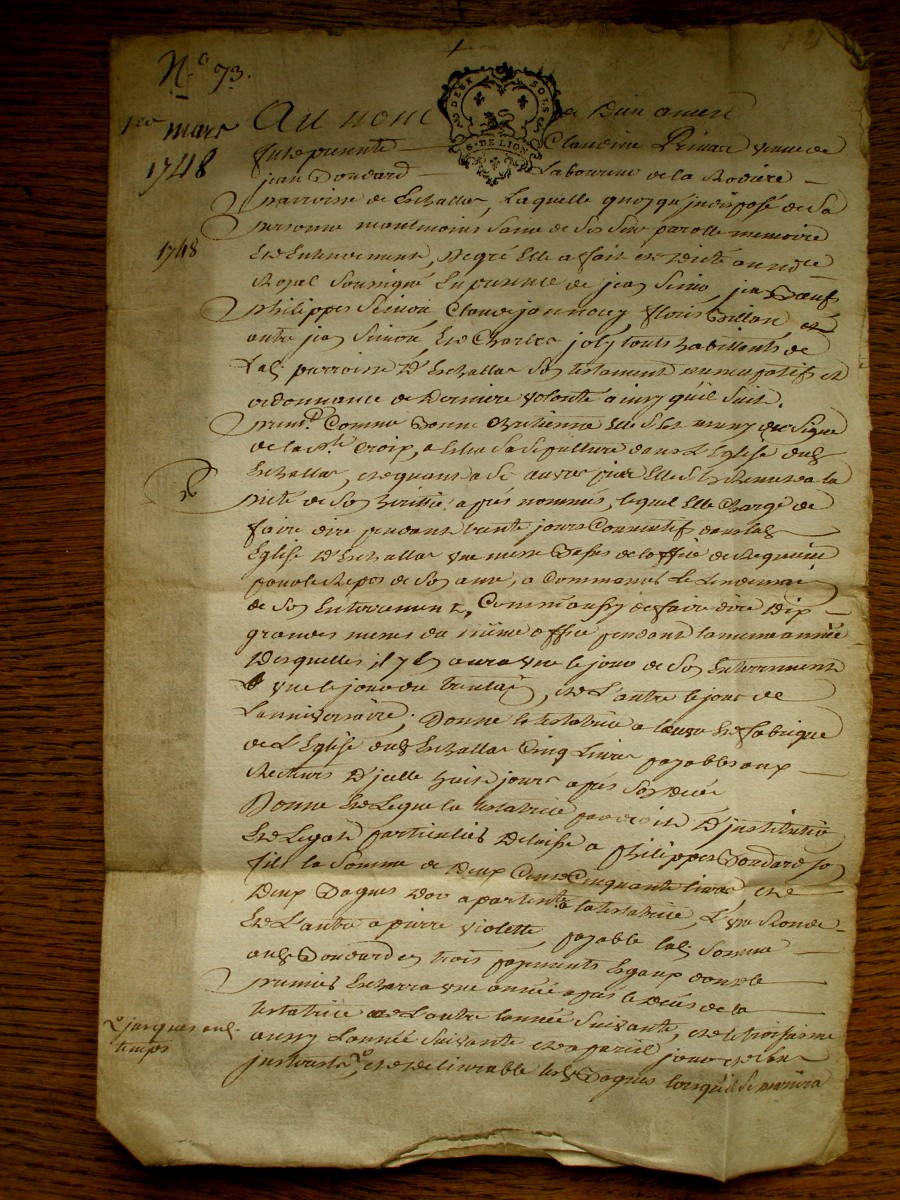 N.º 73.
1er mars
1748
1748
DEUX SOLS
G. DE LION
Au nom de Dieu amen
fut presente Claudine Pinart veuve de
jean Goudard Laboureur de la Rodiere
parroisse de Eschallas, Laquelle quoyqu'indisposé de sa
personne neantmoins saine de ses sens parolle memoire
Et Entendement, De gré Elle a fait et dicté au nore
Royal soussigné En presence de jean Simon jean
philippes Simon, Claude jannoray fleuris Villon, et
autre jean Simon, Et Charles joly touts habittants de
Lad. parroisse D'Eschallas son testament nuncupatif et
ordonnance de Derniere volonté ainsy qu'il suit.
prem.t Comme bonne Chretienne Elle s'Est muny du signe
de la ste Croix, a Eslu sa sepulture dans L'Eglise dud.
Eschallas, et quant a ses œuvres pies Elle s'En Remet a la
pieté de son heritier apres nommés, lequel Elle charge de
faire dire pendant trente jours Consecutifs dans lad.
Eglise D'Eschallas une messe basse de l'office de Requiem
pour le Repos de son ame, a Commencer Le Lendemain
de son Enterrement, Comm'aussy de faire dire Dix
grandes messes du même office pendant la meme année
Desquelles il y En aura une le jour de son Enterrement
une le jour du trentain, et L'autre le jour de
L'anniversaire; Donne la testatrice a l'œuvre Et fabrique
de L'Eglise dud. Eschallas Cinq Livres payables aux
Recteurs D'jcelle huit jours apres son decès
Donne Et Legue la testatrice par droit D'institution
Et Legat particulier Delaisse a philippes Goudard son
fils la somme de Deux Cent Cinquante livres, et
Deux Bagues D'or apartente a la testatrice, L'une Ronde
Et L'autre a pierre violette, payable lad. somme
aud. Goudard en trois payements Egaux dont le
premier Echerra une année apres le decès de la
testatrice et L'autre L'année suivante, et le troisieme
aussy L'année suivante et a pareil jour
jusques aud.
temps
et delivrable lesd. Bagues lorsqu'il se mariera